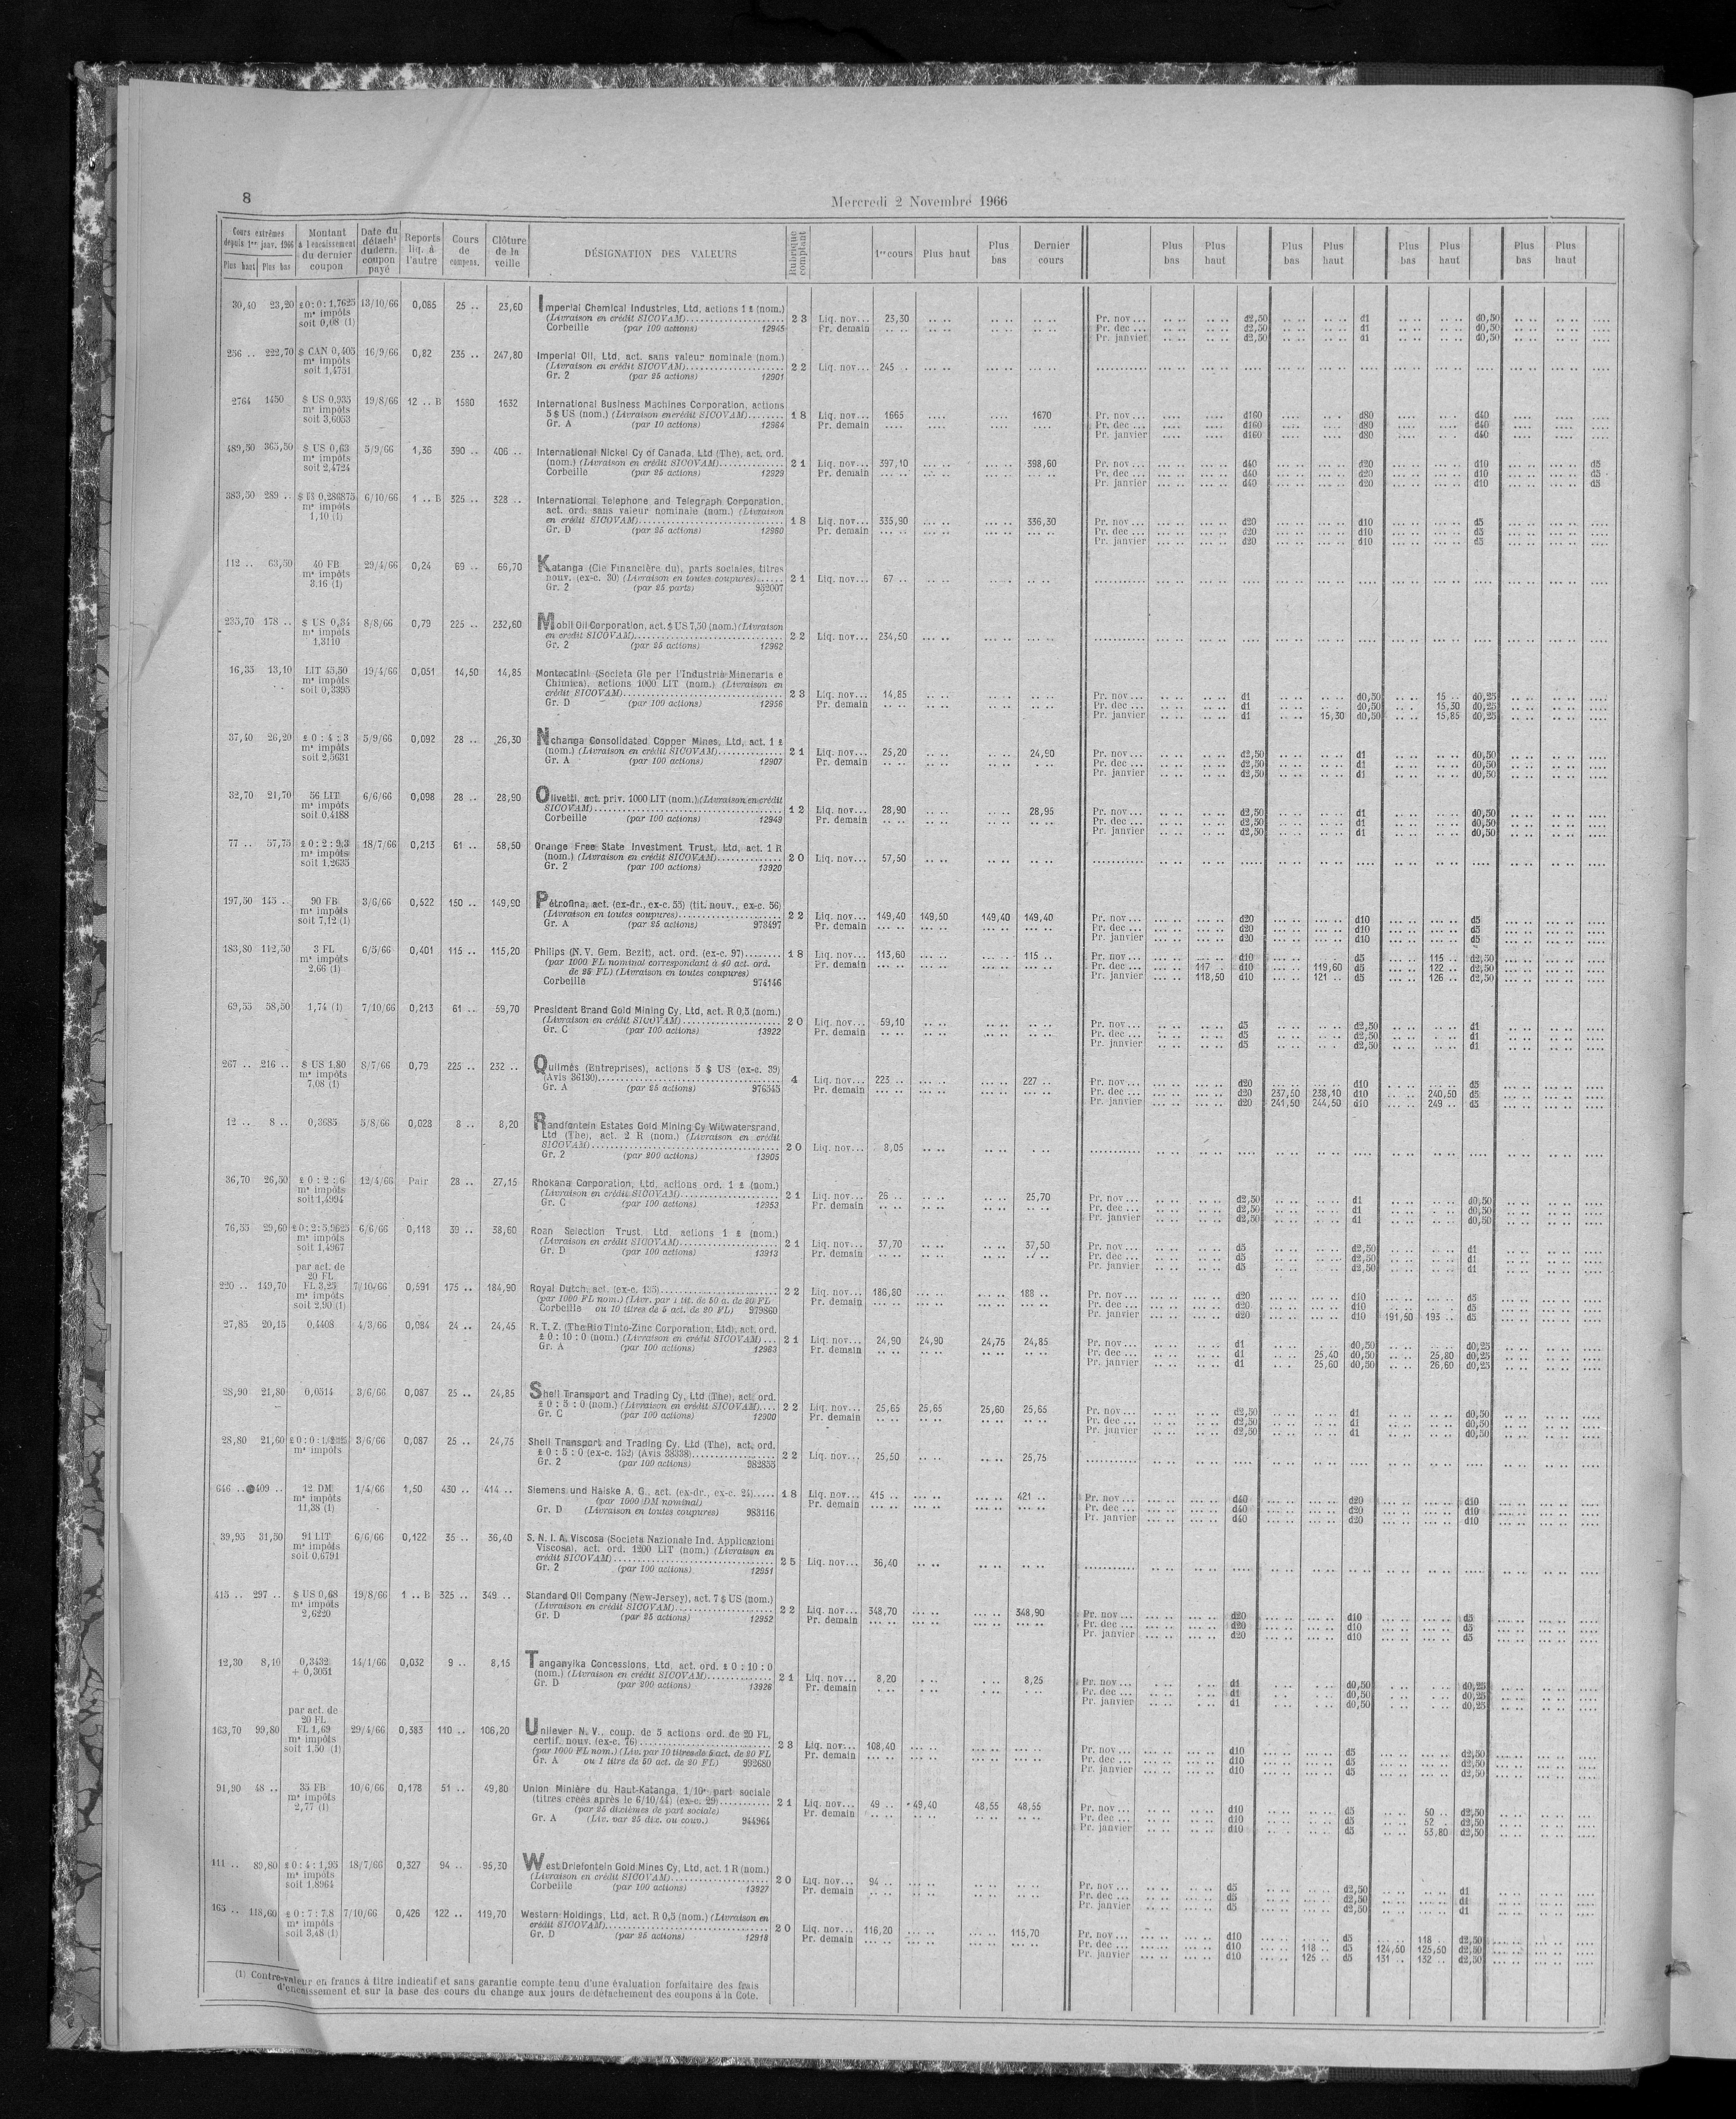 8
Mercredi 2 Novembre 1966
Cours extrêmes depuis 1er janv. 1966
Plus haut Plus bas
Montant à l'encaissement du dernier coupon
Date du détacht du dern. coupon payé
Reports liq. à l'autre
Cours de compens.
Clôture de la veille
DÉSIGNATION DES VALEURS
Rubrique comptant
1er cours Plus haut Plus bas Dernier cours
Plus bas Plus haut Plus bas Plus haut Plus bas Plus haut Plus bas Plus haut
30,40 23,20 £ 0 : 0 : 1,7625 13/10/66 0,085 25 .. 23,60 Imperial Chemical Industries, Ltd, actions 1 £ (nom.)
m* impôts (Livraison en crédit SICOVAM) 23 Liq. nov... 23,30 Pr. nov... d2,50 d1 d0,50
soit 0,08 (1) Corbeille (par 100 actions) 12945 Pr. demain Pr. dec... d2,50 d1 d0,50
Pr. janvier d2,50 d1 d0,50
256 .. 222,70 $ CAN 0,405 16/9/66 0,82 235 .. 247,80 Imperial Oil, Ltd, act. sans valeur nominale (nom.)
m* impôts (Livraison en crédit SICOVAM) 22 Liq. nov... 245 ..
soit 1,4751 Gr. 2 (par 25 actions) 12901
2764 1450 $ US 0,935 19/8/66 12 .. B 1580 1632 International Business Machines Corporation, actions
m* impôts 5 $ US (nom.) (Livraison en crédit SICOVAM) 18 Liq. nov... 1665 1670 Pr. nov... d160 d80 d40
soit 3,6053 Gr. A (par 10 actions) 12984 Pr. demain Pr. dec... d160 d80 d40
Pr. janvier d160 d80 d40
489,50 365,50 $ US 0,63 5/9/66 1,36 390 .. 406 .. International Nickel Cy of Canada, Ltd (The), act. ord.
m* impôts (nom.) (Livraison en crédit SICOVAM) 21 Liq. nov... 397,10 398,60 Pr. nov... d40 d20 d10 d5
soit 2,4724 Corbeille (par 25 actions) 12929 Pr. demain Pr. dec... d40 d20 d10 d5
Pr. janvier d40 d20 d10 d5
383,50 289 .. $ US 0,286875 6/10/66 1 .. B 325 .. 328 .. International Telephone and Telegraph Corporation,
m* impôts act. ord. sans valeur nominale (nom.) (Livraison
1,10 (1) en crédit SICOVAM) 18 Liq. nov... 335,90 336,30 Pr. nov... d20 d10 d5
Gr. D (par 25 actions) 12980 Pr. demain Pr. dec... d20 d10 d5
Pr. janvier d20 d10 d5
112 .. 63,50 40 FB 29/4/66 0,24 69 .. 66,70 Katanga (Cie Financière du), parts sociales, titres
m* impôts nouv. (ex-c. 30) (Livraison en toutes coupures) 21 Liq. nov... 67 ..
3,16 (1) Gr. 2 (par 25 parts) 952007
235,70 178 .. $ US 0,34 8/8/66 0,79 225 .. 232,60 Mobil Oil Corporation, act. $ US 7,50 (nom.) (Livraison
m* impôts en crédit SICOVAM) 22 Liq. nov... 234,50
1,3110 Gr. 2 (par 25 actions) 12962
16,35 13,10 LIT 45,50 19/4/66 0,051 14,50 14,85 Montecatini (Societa Gle per l'Industria Mineraria e
m* impôts Chimica), actions 1000 LIT (nom.) (Livraison en
soit 0,3395 crédit SICOVAM) 23 Liq. nov... 14,85 Pr. nov... d1 d0,50 15 .. d0,25
Gr. D (par 100 actions) 12956 Pr. demain Pr. dec... d1 d0,50 15,30 d0,25
Pr. janvier d1 15,30 d0,50 15,85 d0,25
37,40 26,20 £ 0 : 4 : 3 5/9/66 0,092 28 .. 26,30 Nchanga Consolidated Copper Mines, Ltd, act. 1 £
m* impôts (nom.) (Livraison en crédit SICOVAM) 21 Liq. nov... 25,20 24,90 Pr. nov... d2,50 d1 d0,50
soit 2,5631 Gr. A (par 100 actions) 12907 Pr. demain Pr. dec... d2,50 d1 d0,50
Pr. janvier d2,50 d1 d0,50
32,70 21,70 56 LIT 6/6/66 0,098 28 .. 28,90 Olivetti, act. priv. 1000 LIT (nom.) (Livraison en crédit
m* impôts SICOVAM) 12 Liq. nov... 28,90 28,95 Pr. nov... d2,50 d1 d0,50
soit 0,4188 Corbeille (par 100 actions) 12949 Pr. demain Pr. dec... d2,50 d1 d0,50
Pr. janvier d2,50 d1 d0,50
77 .. 57,75 £ 0 : 2 : 9,3 18/7/66 0,213 61 .. 58,50 Orange Free State Investment Trust, Ltd, act. 1 R
m* impôts (nom.) (Livraison en crédit SICOVAM) 20 Liq. nov... 57,50
soit 1,2635 Gr. 2 (par 100 actions) 13920
197,50 145 .. 90 FB 3/6/66 0,522 150 .. 149,90 Pétrofina, act. (ex-dr., ex-c. 55) (tit. nouv., ex-c. 56)
m* impôts (Livraison en toutes coupures) 22 Liq. nov... 149,40 149,50 149,40 149,40 Pr. nov... d20 d10 d5
soit 7,12 (1) Gr. A (par 25 actions) 973497 Pr. demain Pr. dec... d20 d10 d5
Pr. janvier d20 d10 d5
183,80 112,50 3 FL 6/5/66 0,401 115 .. 115,20 Philips (N. V. Gem. Bezit), act. ord. (ex-c. 97) 18 Liq. nov... 113,60 115 .. Pr. nov... d10 d5 115 .. d2,50
m* impôts (par 1000 FL nominal correspondant à 40 act. ord. Pr. demain Pr. dec... 117 .. d10 119,60 d5 122 .. d2,50
2,66 (1) de 25 FL) (Livraison en toutes coupures) Pr. janvier 118,50 d10 121 .. d5 126 .. d2,50
Corbeille 974146
69,55 58,50 1,74 (1) 7/10/66 0,213 61 .. 59,70 President Brand Gold Mining Cy, Ltd, act. R 0,5 (nom.)
(Livraison en crédit SICOVAM) 20 Liq. nov... 59,10 Pr. nov... d5 d2,50 d1
Gr. C (par 100 actions) 13922 Pr. demain Pr. dec... d5 d2,50 d1
Pr. janvier d5 d2,50 d1
267 .. 216 .. $ US 1,80 8/7/66 0,79 225 .. 232 .. Quilmès (Entreprises), actions 5 $ US (ex-c. 39)
m* impôts (Avis 36130) 4 Liq. nov... 223 .. 227 .. Pr. nov... d20 d10 d5
7,08 (1) Gr. A (par 25 actions) 976345 Pr. demain Pr. dec... d20 237,50 238,10 d10 240,50 d5
Pr. janvier d20 241,50 244,50 d10 249 .. d5
12 .. 8 .. 0,3685 5/8/66 0,028 8 .. 8,20 Randfontein Estates Gold Mining Cy Witwatersrand,
Ltd (The), act. 2 R (nom.) (Livraison en crédit
SICOVAM) 20 Liq. nov... 8,05
Gr. 2 (par 200 actions) 13905
36,70 26,50 £ 0 : 2 : 6 12/4/66 Pair 28 .. 27,15 Rhokana Corporation, Ltd, actions ord. 1 £ (nom.)
m* impôts (Livraison en crédit SICOVAM) 21 Liq. nov... 26 .. 25,70 Pr. nov... d2,50 d1 d0,50
soit 1,4994 Gr. C (par 100 actions) 12953 Pr. demain Pr. dec... d2,50 d1 d0,50
Pr. janvier d2,50 d1 d0,50
76,55 29,60 £ 0 : 2 : 5,9625 6/6/66 0,118 39 .. 38,60 Roan Selection Trust, Ltd, actions 1 £ (nom.)
m* impôts (Livraison en crédit SICOVAM) 21 Liq. nov... 37,70 37,50 Pr. nov... d5 d2,50 d1
soit 1,4967 Gr. D (par 100 actions) 13913 Pr. demain Pr. dec... d5 d2,50 d1
Pr. janvier d5 d2,50 d1
par act. de
20 FL
220 .. 149,70 FL 3,25 7/10/66 0,591 175 .. 184,90 Royal Dutch, act. (ex-c. 135) 22 Liq. nov... 186,80 188 .. Pr. nov... d20 d10 d5
m* impôts (par 1000 FL nom.) (Livr. par 1 tit. de 50 a. de 20 FL Pr. demain Pr. dec... d20 d10 d5
soit 2,90 (1) Corbeille ou 10 titres de 5 act. de 20 FL) 979860 Pr. janvier d20 d10 191,50 193 .. d5
27,85 20,15 0,4408 4/3/66 0,084 24 .. 24,45 R. T. Z. (The Rio Tinto-Zinc Corporation, Ltd), act. ord.
£ 0 : 10 : 0 (nom.) (Livraison en crédit SICOVAM) 21 Liq. nov... 24,90 24,90 24,75 24,85 Pr. nov... d1 d0,50 d0,25
Gr. A (par 100 actions) 12963 Pr. demain Pr. dec... d1 25,40 d0,50 25,80 d0,25
Pr. janvier d1 25,60 d0,50 26,60 d0,25
28,90 21,80 0,0514 3/6/66 0,087 25 .. 24,85 Shell Transport and Trading Cy, Ltd (The), act. ord.
£ 0 : 5 : 0 (nom.) (Livraison en crédit SICOVAM) 22 Liq. nov... 25,65 25,65 25,60 25,65 Pr. nov... d2,50 d1 d0,50
Gr. C (par 100 actions) 12900 Pr. demain Pr. dec... d2,50 d1 d0,50
Pr. janvier d2,50 d1 d0,50
28,80 21,60 £ 0 : 0 : 3/6/66 0,087 25 .. 24,75 Shell Transport and Trading Cy, Ltd (The), act. ord.
m* impôts £ 0 : 5 : 0 (ex-c. 132) (Avis 38338) 22 Liq. nov... 25,50 25,75
Gr. 2 (par 100 actions) 982855
646 .. 409 .. 12 DM 1/4/66 1,50 430 .. 414 .. Siemens und Halske A. G., act. (ex-dr., ex-c. 24) 18 Liq. nov... 415 .. 421 .. Pr. nov... d40 d20 d10
m* impôts (par 1000 DM nominal) Pr. demain Pr. dec... d40 d20 d10
11,38 (1) Gr. D (Livraison en toutes coupures) 983116 Pr. janvier d40 d20 d10
39,95 31,50 91 LIT 6/6/66 0,122 35 .. 36,40 S. N. I. A. Viscosa (Societa Nazionale Ind. Applicazioni
m* impôts Viscosa), act. ord. 1200 LIT (nom.) (Livraison en
soit 0,6791 crédit SICOVAM) 25 Liq. nov... 36,40
Gr. 2 (par 100 actions) 12951
415 .. 297 .. $ US 0,68 19/8/66 1 .. B 325 .. 349 .. Standard Oil Company (New-Jersey), act. 7 $ US (nom.)
m* impôts (Livraison en crédit SICOVAM) 22 Liq. nov... 348,70 348,90 Pr. nov... d20 d10 d5
2,6220 Gr. D (par 25 actions) 12952 Pr. demain Pr. dec... d20 d10 d5
Pr. janvier d20 d10 d5
12,30 8,10 0,3432 14/1/66 0,032 9 .. 8,15 Tanganyika Concessions, Ltd, act. ord. £ 0 : 10 : 0
+ 0,3051 (nom.) (Livraison en crédit SICOVAM) 21 Liq. nov... 8,20 8,25 Pr. nov... d1 d0,50 d0,25
Gr. D (par 200 actions) 13926 Pr. demain Pr. dec... d1 d0,50 d0,25
Pr. janvier d1 d0,50 d0,25
par act. de
20 FL
163,70 99,80 FL 1,69 29/4/66 0,383 110 .. 106,20 Unilever N. V., coup. de 5 actions ord. de 20 FL,
m* impôts certif. nouv. (ex-c. 76) 23 Liq. nov... 108,40 Pr. nov... d10 d5 d2,50
soit 1,50 (1) (par 1000 FL nom.) (Liv. par 10 titres de 5 act. de 20 FL Pr. demain Pr. dec... d10 d5 d2,50
Gr. A ou 1 titre de 50 act. de 20 FL) 992680 Pr. janvier d10 d5 d2,50
91,90 48 .. 35 FB 10/6/66 0,178 51 .. 49,80 Union Minière du Haut-Katanga, 1/10e part sociale
m* impôts (titres créés après le 6/10/44) (ex-c. 29) 21 Liq. nov... 49 .. 49,40 48,55 48,55 Pr. nov... d10 d5 50 .. d2,50
2,77 (1) (par 25 dixièmes de part sociale) Pr. demain Pr. dec... d10 d5 52 .. d2,50
Gr. A (Liv. par 25 dix. ou coup.) 944964 Pr. janvier d10 d5 53,80 d2,50
111 .. 89,80 £ 0 : 4 : 1,95 18/7/66 0,327 94 .. 95,30 West Driefontein Gold Mines Cy, Ltd, act. 1 R (nom.)
m* impôts (Livraison en crédit SICOVAM) 20 Liq. nov... 94 .. Pr. nov... d5 d2,50 d1
soit 1,8964 Corbeille (par 100 actions) 13927 Pr. demain Pr. dec... d5 d2,50 d1
Pr. janvier d5 d2,50 d1
165 .. 118,60 £ 0 : 7 : 7,8 7/10/66 0,426 122 .. 119,70 Western Holdings, Ltd, act. R 0,5 (nom.) (Livraison en
m* impôts crédit SICOVAM) 20 Liq. nov... 116,20 115,70 Pr. nov... d10 d5 118 .. d2,50
soit 3,48 (1) Gr. D (par 25 actions) 12918 Pr. demain Pr. dec... d10 118 .. d5 124,60 125,50 d2,50
Pr. janvier d10 125 .. d5 131 .. 132 .. d2,50
(1) Contre-valeur en francs à titre indicatif et sans garantie compte tenu d'une évaluation forfaitaire des frais
d'encaissement et sur la base des cours du change aux jours de détachement des coupons à la Cote.